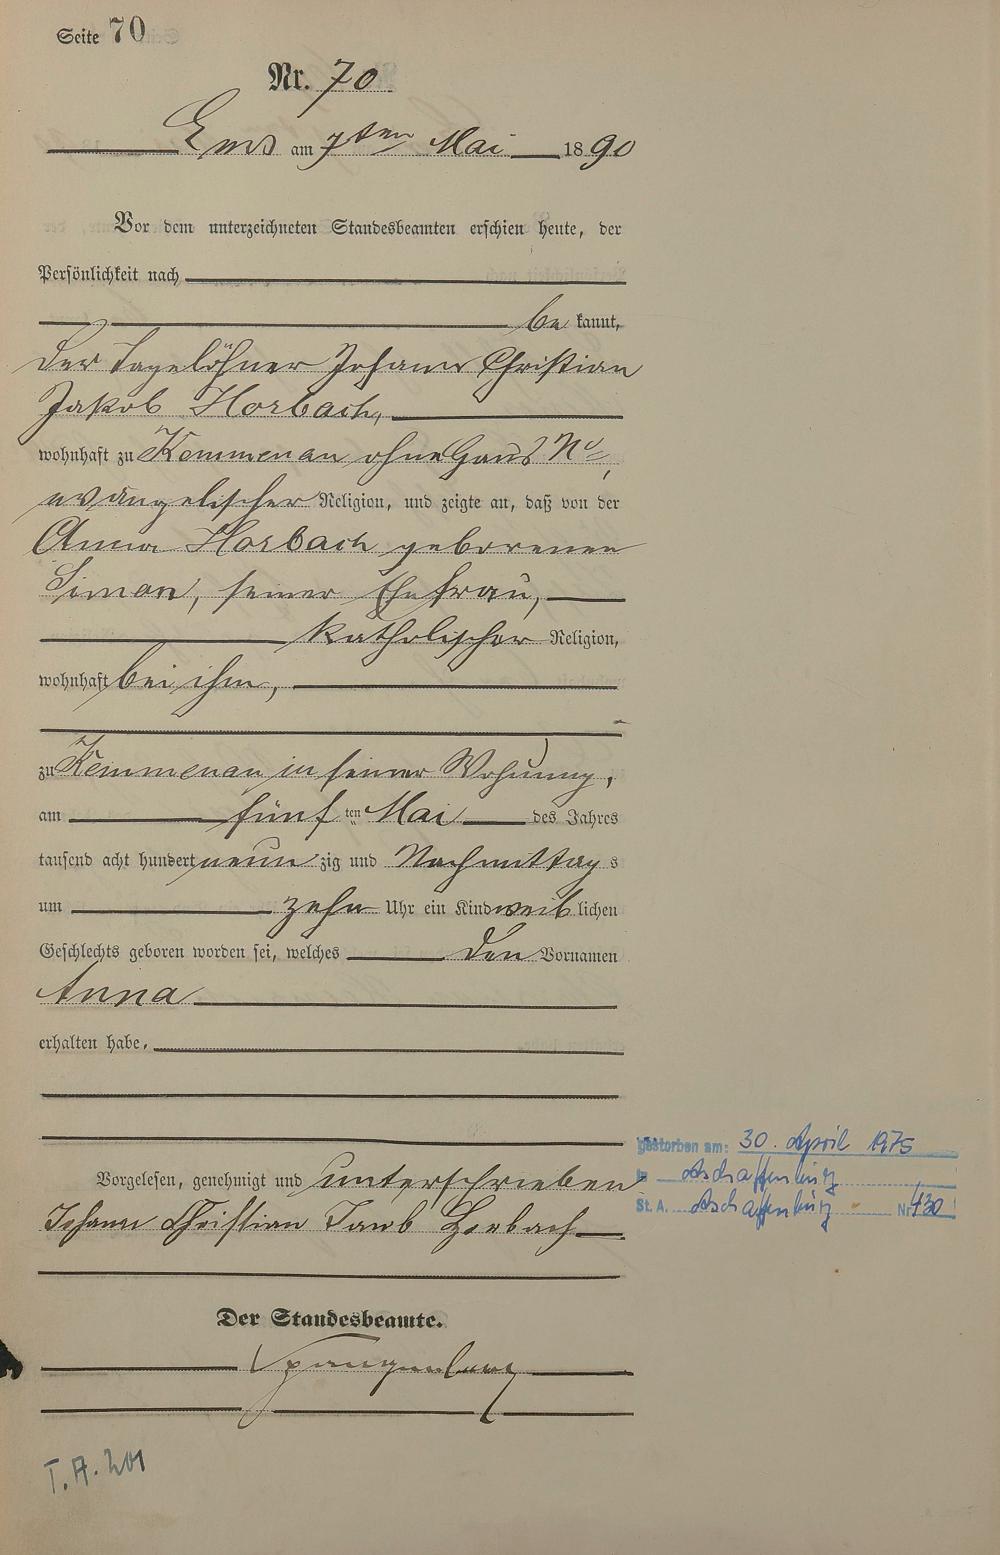 Seite 70
Nr. 70
Ems am 7ten Mai 1890
Vor dem unterzeichneten Standesbeamten erschien heute, der
Persönlichkeit nach
be kannt,
der Tagelöhner Johann Christian
Jakob Horbach,
wohnhaft zu Kemmenau ohne Haus No,
evangelischer Religion, und zeigte an, daß von der
Anna Horbach geborenen
Simon, seiner Ehefrau,
katholischer Religion,
wohnhaft bei ihm,
zu Kemmenau in seiner Wohnung,
am fünf ten Mai des Jahres
tausend acht hundert neun zig und Nachmittag s
um zehn Uhr ein Kind weib lichen
Geschlechts geboren worden sei, welches den Vornamen
Anna
erhalten habe.
Vorgelesen, genehmigt und unterschrieben
Johann Christian Jacob Horbach
Der Standesbeamte.
Spangenberg
gestorben am: 30. April 1975
in Aschaffenburg
St. A. Aschaffenburg Nr. 430
T.A. 201